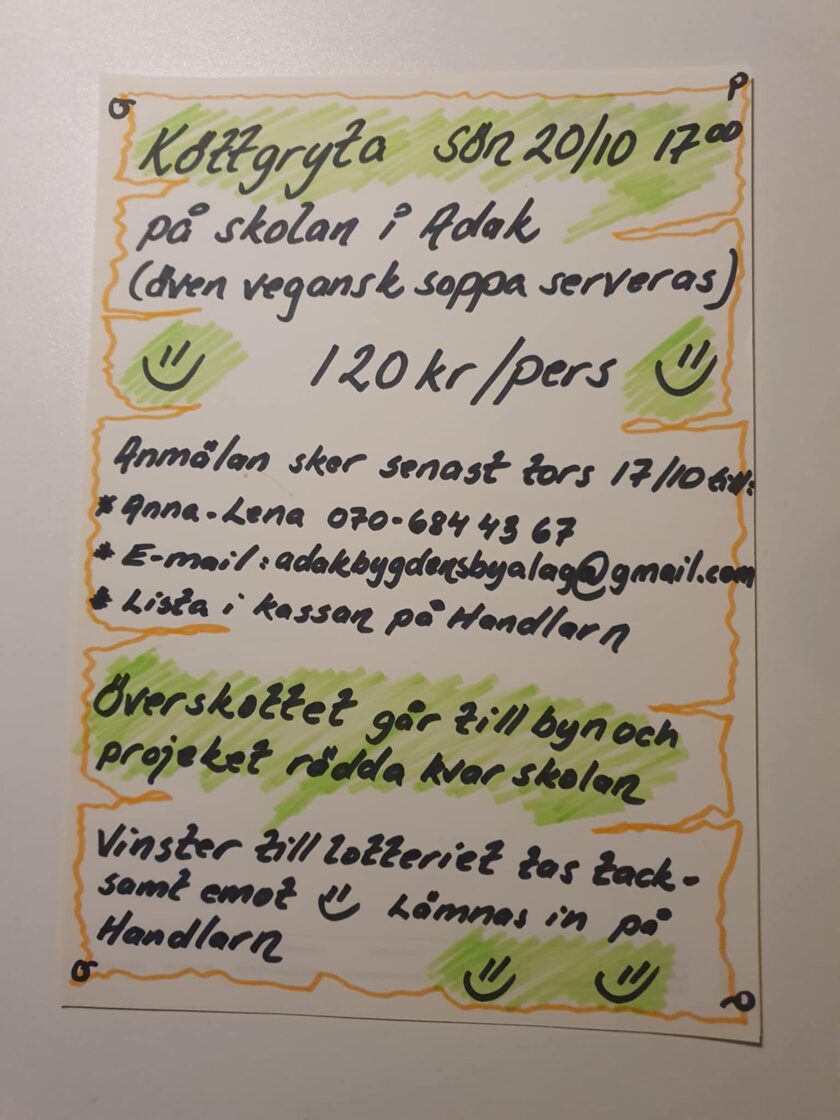 Köttgryta sön 20/10 17⁰⁰
på skolan i Adak
(även vegansk soppa serveras)
120 kr/pers
Anmälan sker senast tors 17/10 till:
* Anna-Lena 070-684 43 67
* E-mail: adakbygdensbyalag@gmail.com
* Lista i kassan på Handlarn
Överskottet går till byn och
projeket rädda kvar skolan
Vinster till lotteriet tas tack-
samt emot Lämnas in på
Handlarn